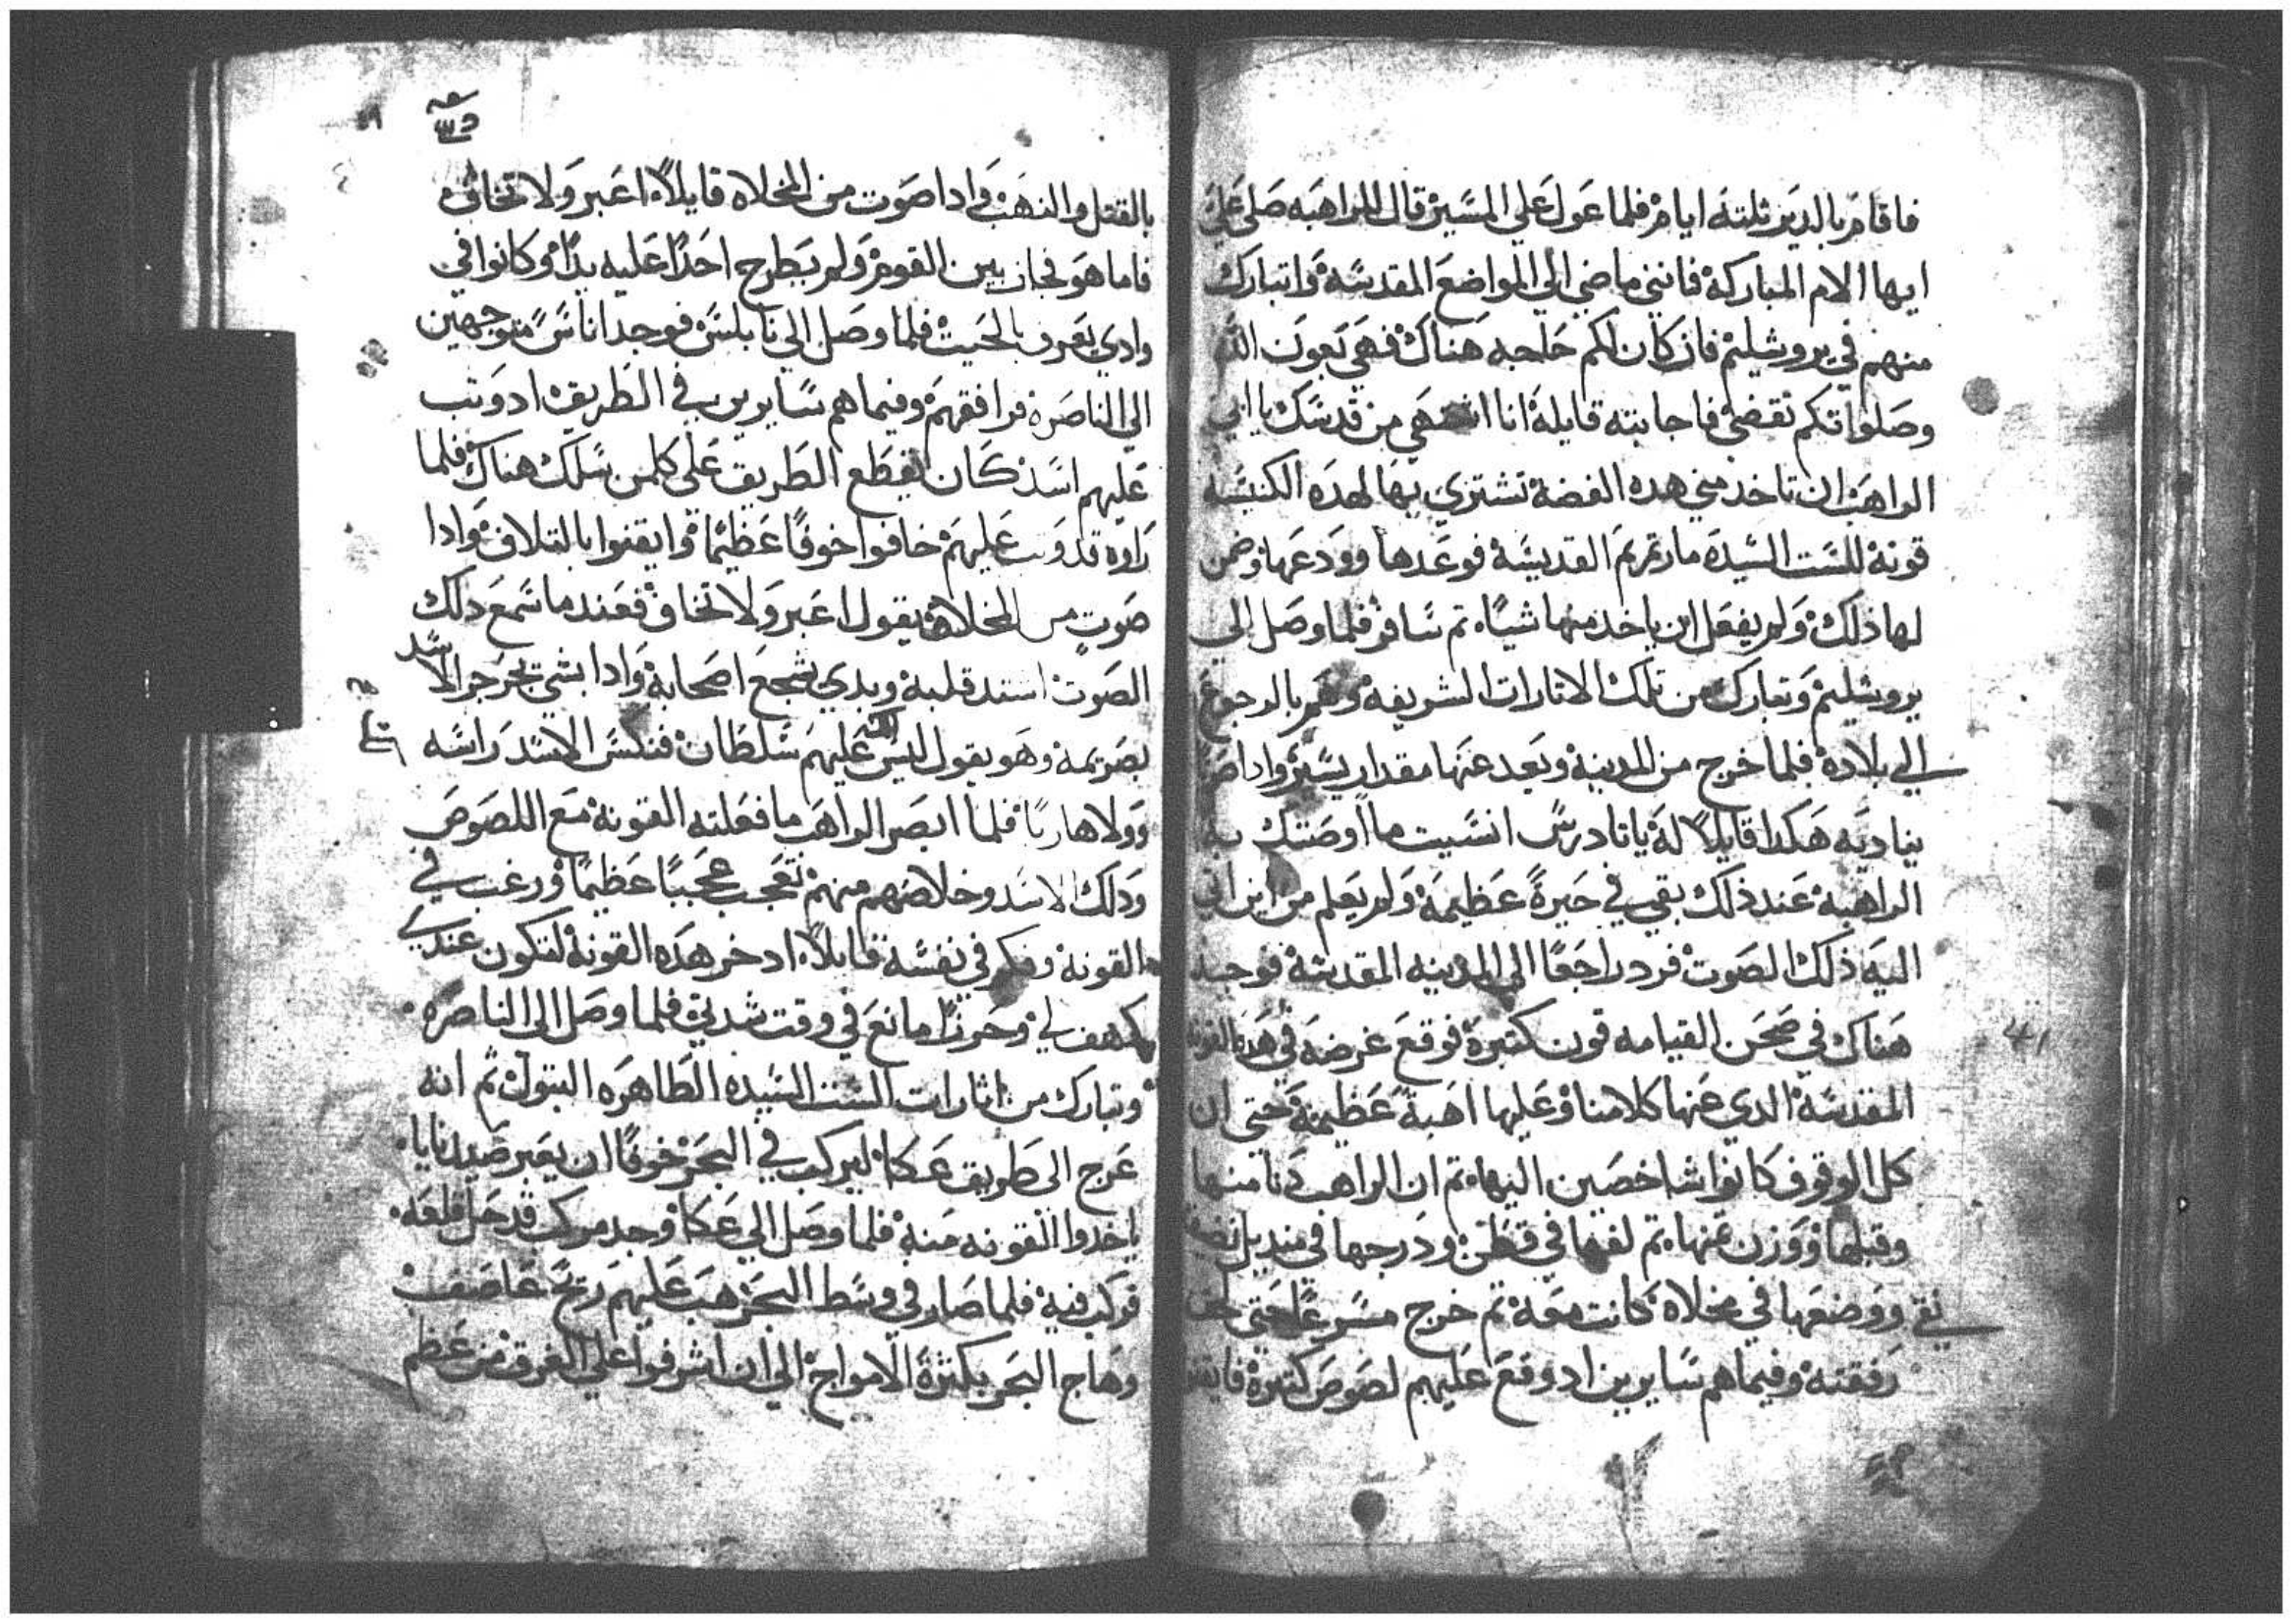 فاقام بالدير ثلثة ايام فلما عول علي المسير قال للراهبه صلي علي
ايها الام المباركة فانني ماضي الي المواضع المقدسة واتبارك
منهم في يروشليم فان كان لكم حاجه هناك فهي بعون الله
وصلواتكم تقضي فاجابته قايلة انا اشتهي من قدسك يا ابي
الراهب ان تاخد مني هده الفضة تشتري بها لهده الكنيسه
قونة للست السيدة مارتمريم القديسة فوعدها وودعها وضمن
لها ذلك ولم يفعل ان ياخد منها شيا تم سافر فلما وصل الي
يروشليم وتبارك من تلك الاتارات الشريفة وهم بالرجوع
الي بلاده فلما خرج من المدينة وبعد عنها مقدار يسير وادا صوت
يناديه هكدا قايلا له يا تادرس انسيت ما اوصتك به
الراهبة عند ذلك بقي في حيرة عظيمة ولم يعلم من اين اتي
اليه ذلك الصوت فرد راجعا الي المدينه المقدسة فوجد
هناك في صحن القيامه قون كتيرة فوقع غرضه في هده القونه
المقدسة الدي عنها كلامنا وعليها اهبة عظيمة حتي ان
كل الوقوف كانوا شاخصين اليها تم ان الراهب دنا منها
وقبلها ووزن تمنها تم لفها في قطن ودرجها في منديل نضيف
نقي ووضعها في مخلاه كانت معه تم خرج مسرعا حتي لحق
رفقته وفيما هم سايرين اد وقع عليهم لصوص كتيرة فايقنوا
41
٥٣
بالقتل والنهب وادا صوت من المخلاه قايلا اعبر ولا تخاف
فاما هو فجاز بين القوم ولم يطرح احدا عليه يدا وكانوا في
وادي يعرف بالحيت فلما وصل الي نابلس فوجد اناس متوجهين
الي الناصرة فرافقهم وفيما هم سايرين في الطريق اد وتب
عليهم اسد كان يقطع الطريق علي كلمن سلك هناك فلما
راوه قد وتب عليهم خافوا خوفا عظيما وايقنوا بالتلاف وادا
صوت من المخلاة يقول اعبر ولا تخاف فعند ما سمع دلك
الصوت استد قلبه وبدي يشجع اصحابة وادا بشي يجرجر الاسد
بصرتمة وهو يقول ليس لك عليهم سلطان فنكس الاسد راسه
وولا هاربا فلما ابصر الراهب ما فعلته القونة مع اللصوص
ودلك الاسد وخلاصهم منهم تعجب عجبا عظيما ورغب في
القونة وفكر في نفسه قايلا ادخر هده القونة لتكون عندي
كهف لي وحرزا مانع في وقت شدتي فلما وصل الي الناصره
وتبارك من اثارات الست السيده الطاهره البتول ثم انه
عرج الي طريق عكا ليركب في البحر خوفا ان يعبر صيدنايا
ياخدوا القونه منة فلما وصل الي عكا وجد مركب قد حل قلعه
فركب فية فلما صار في وسط البحر هب عليهم ريح عاصف
وهاج البحر بكترة الامواج الي ان اشرفوا علي الغرق من عظم